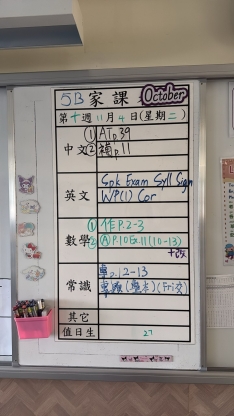 5B 家課 October
第十週 11月4日(星期二)
中文 ① AT p.39
② 補 p.11
英文 Spk Exam Syll Sign
WP(1) Cor
數學 ① 作 P.2-3
② Ⓐ P.10 Ex.11 (10-13)
+改
常識 p.12-13
其它
值日生 27